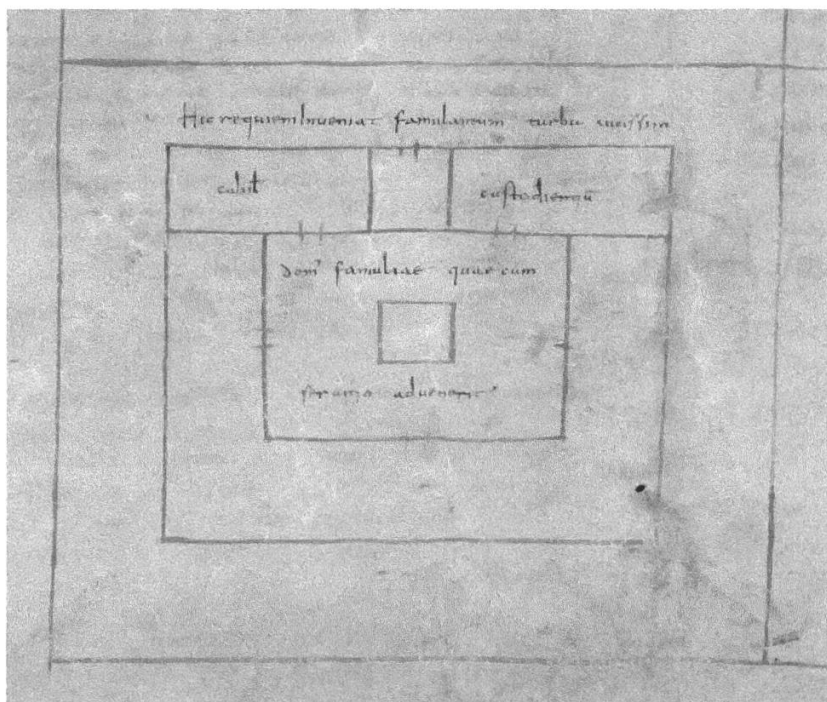 Hic requiem Inveniat famulantum turba vicissim
cubił custodientiū
dom' familiae quae cum
servitio advenerit